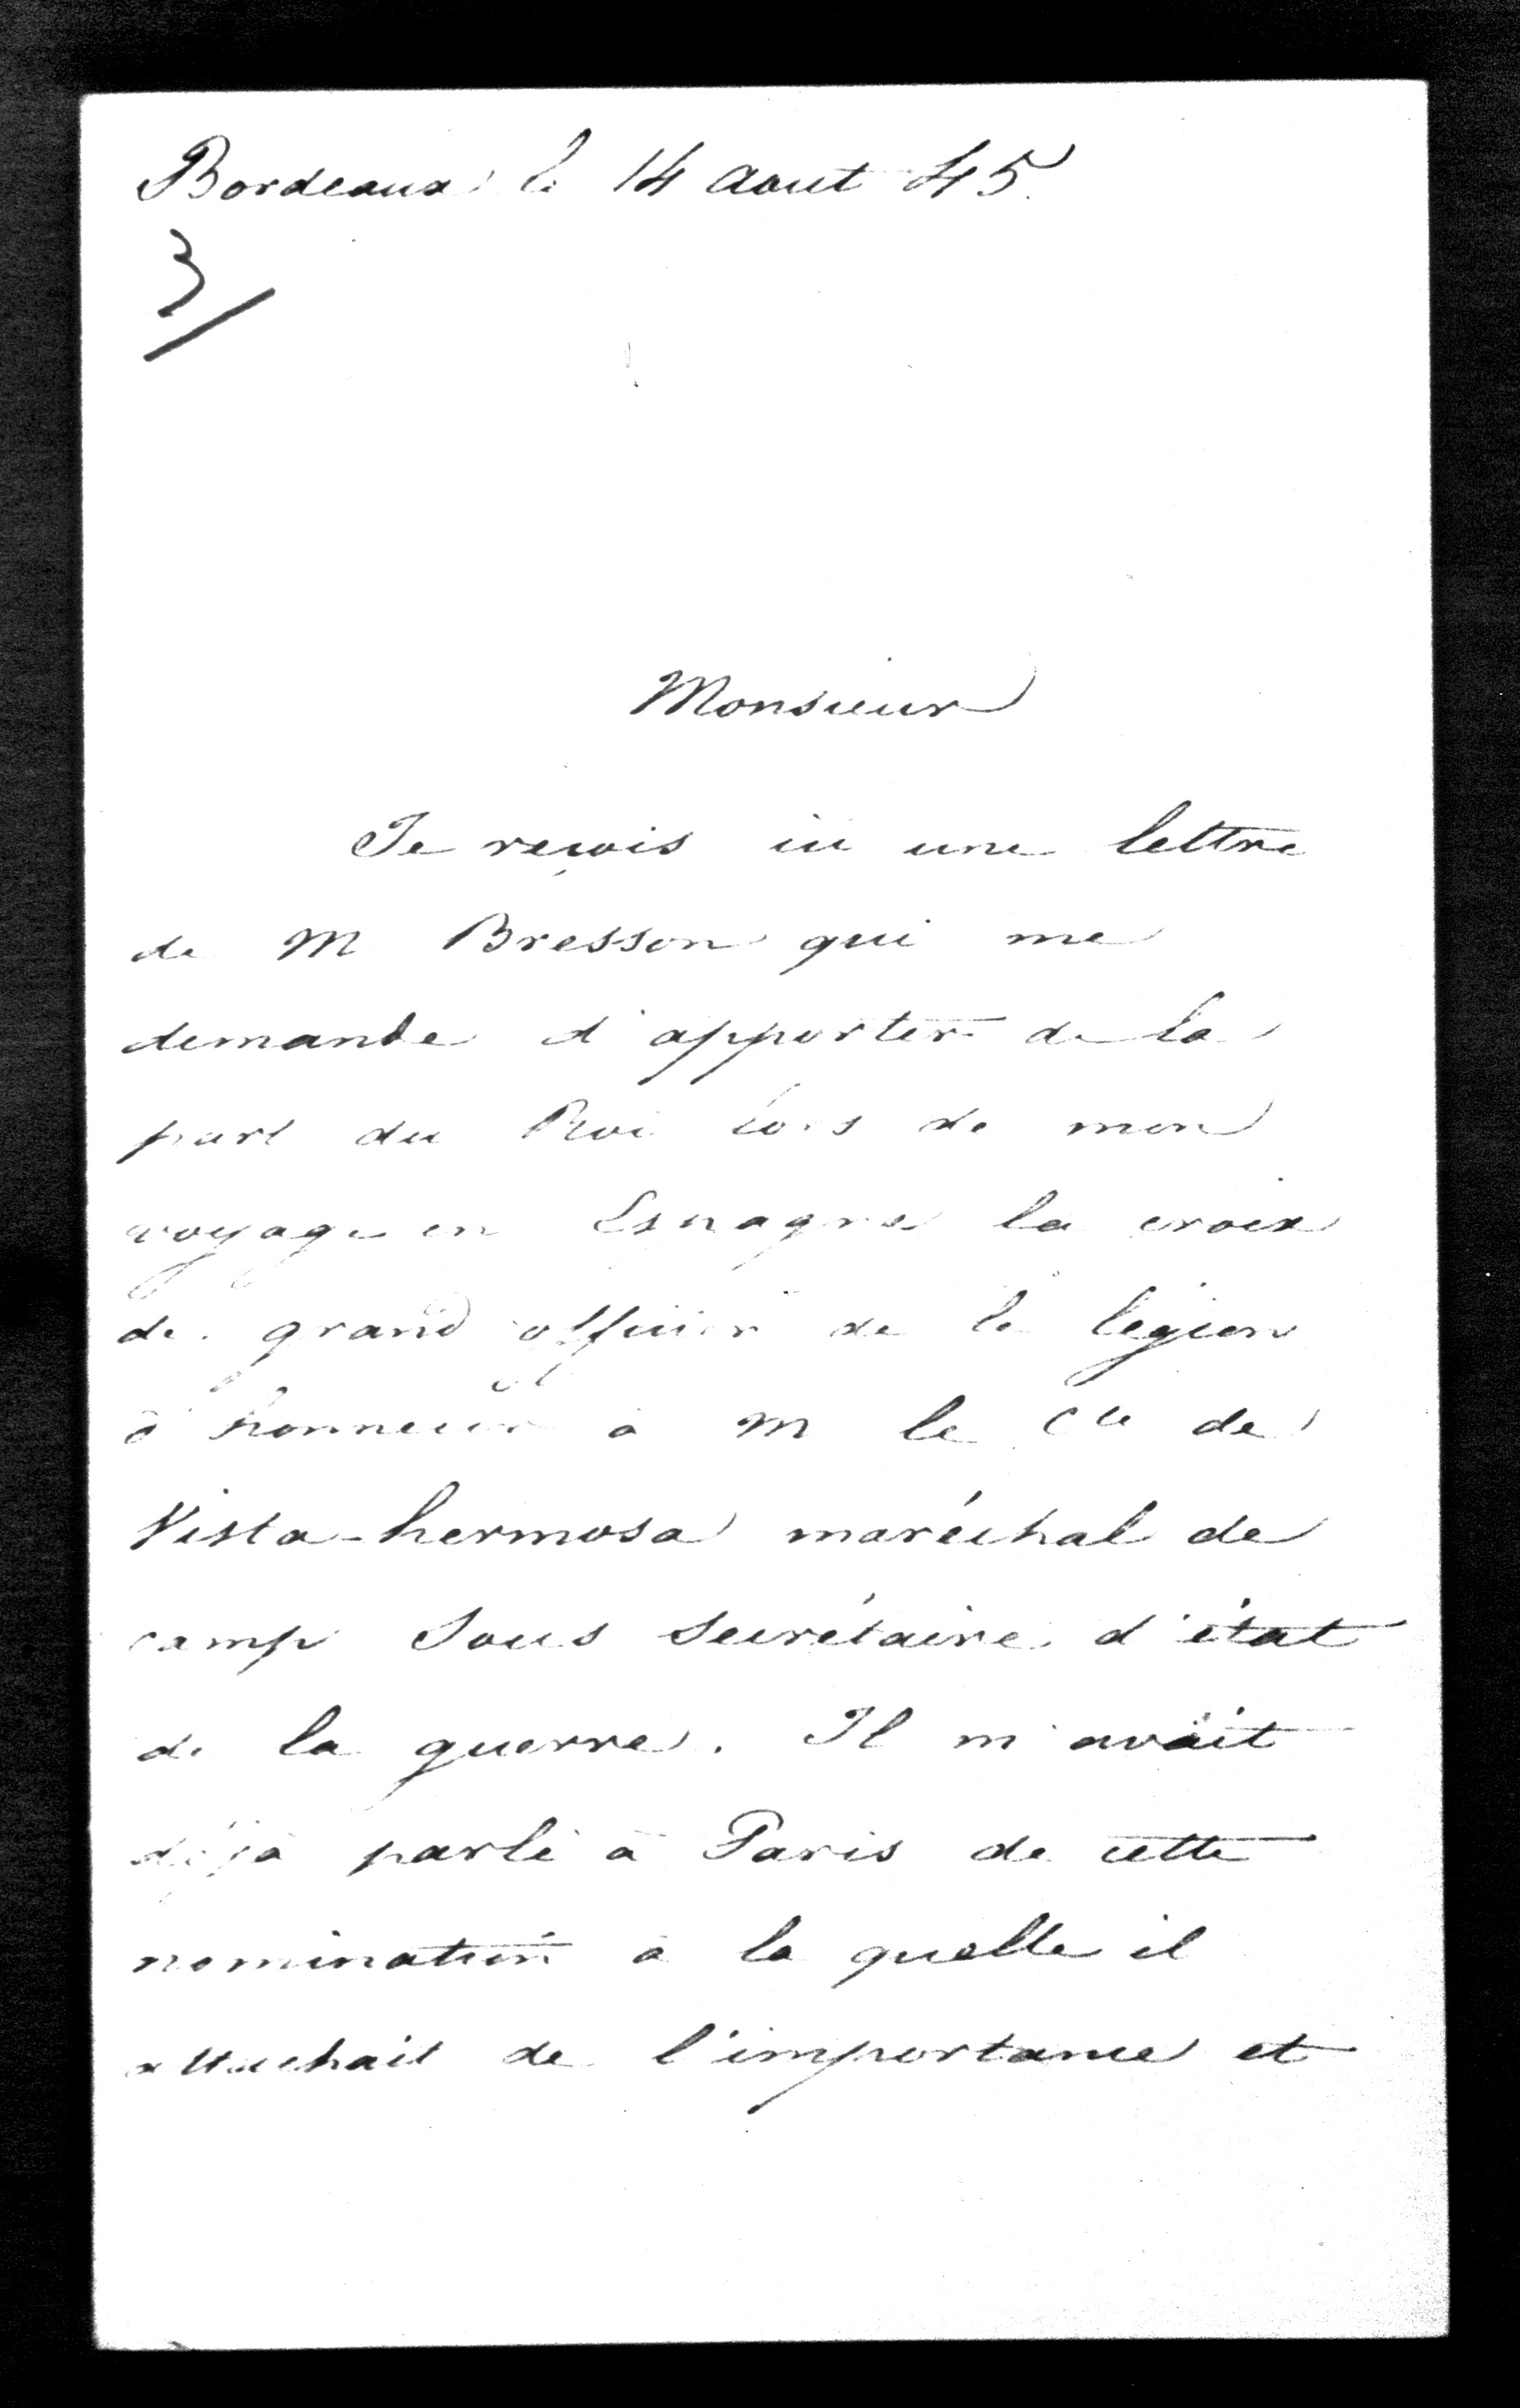 Bordeaux le 14 aout 45.
3/
Monsieur
Je reçois ici une lettre
de M Bresson qui me
demande d'apporter de la
part du Roi lors de mon
voyage en Espagne la croix
de grand officier de la légion
d'honneur à M le Cte de
Vista-hermosa maréchal de
camp Sous Secrétaire d'état
de la guerre. Il m'avait
déjà parlé à Paris de cette
nomination à la quelle il
attachait de l'importance et